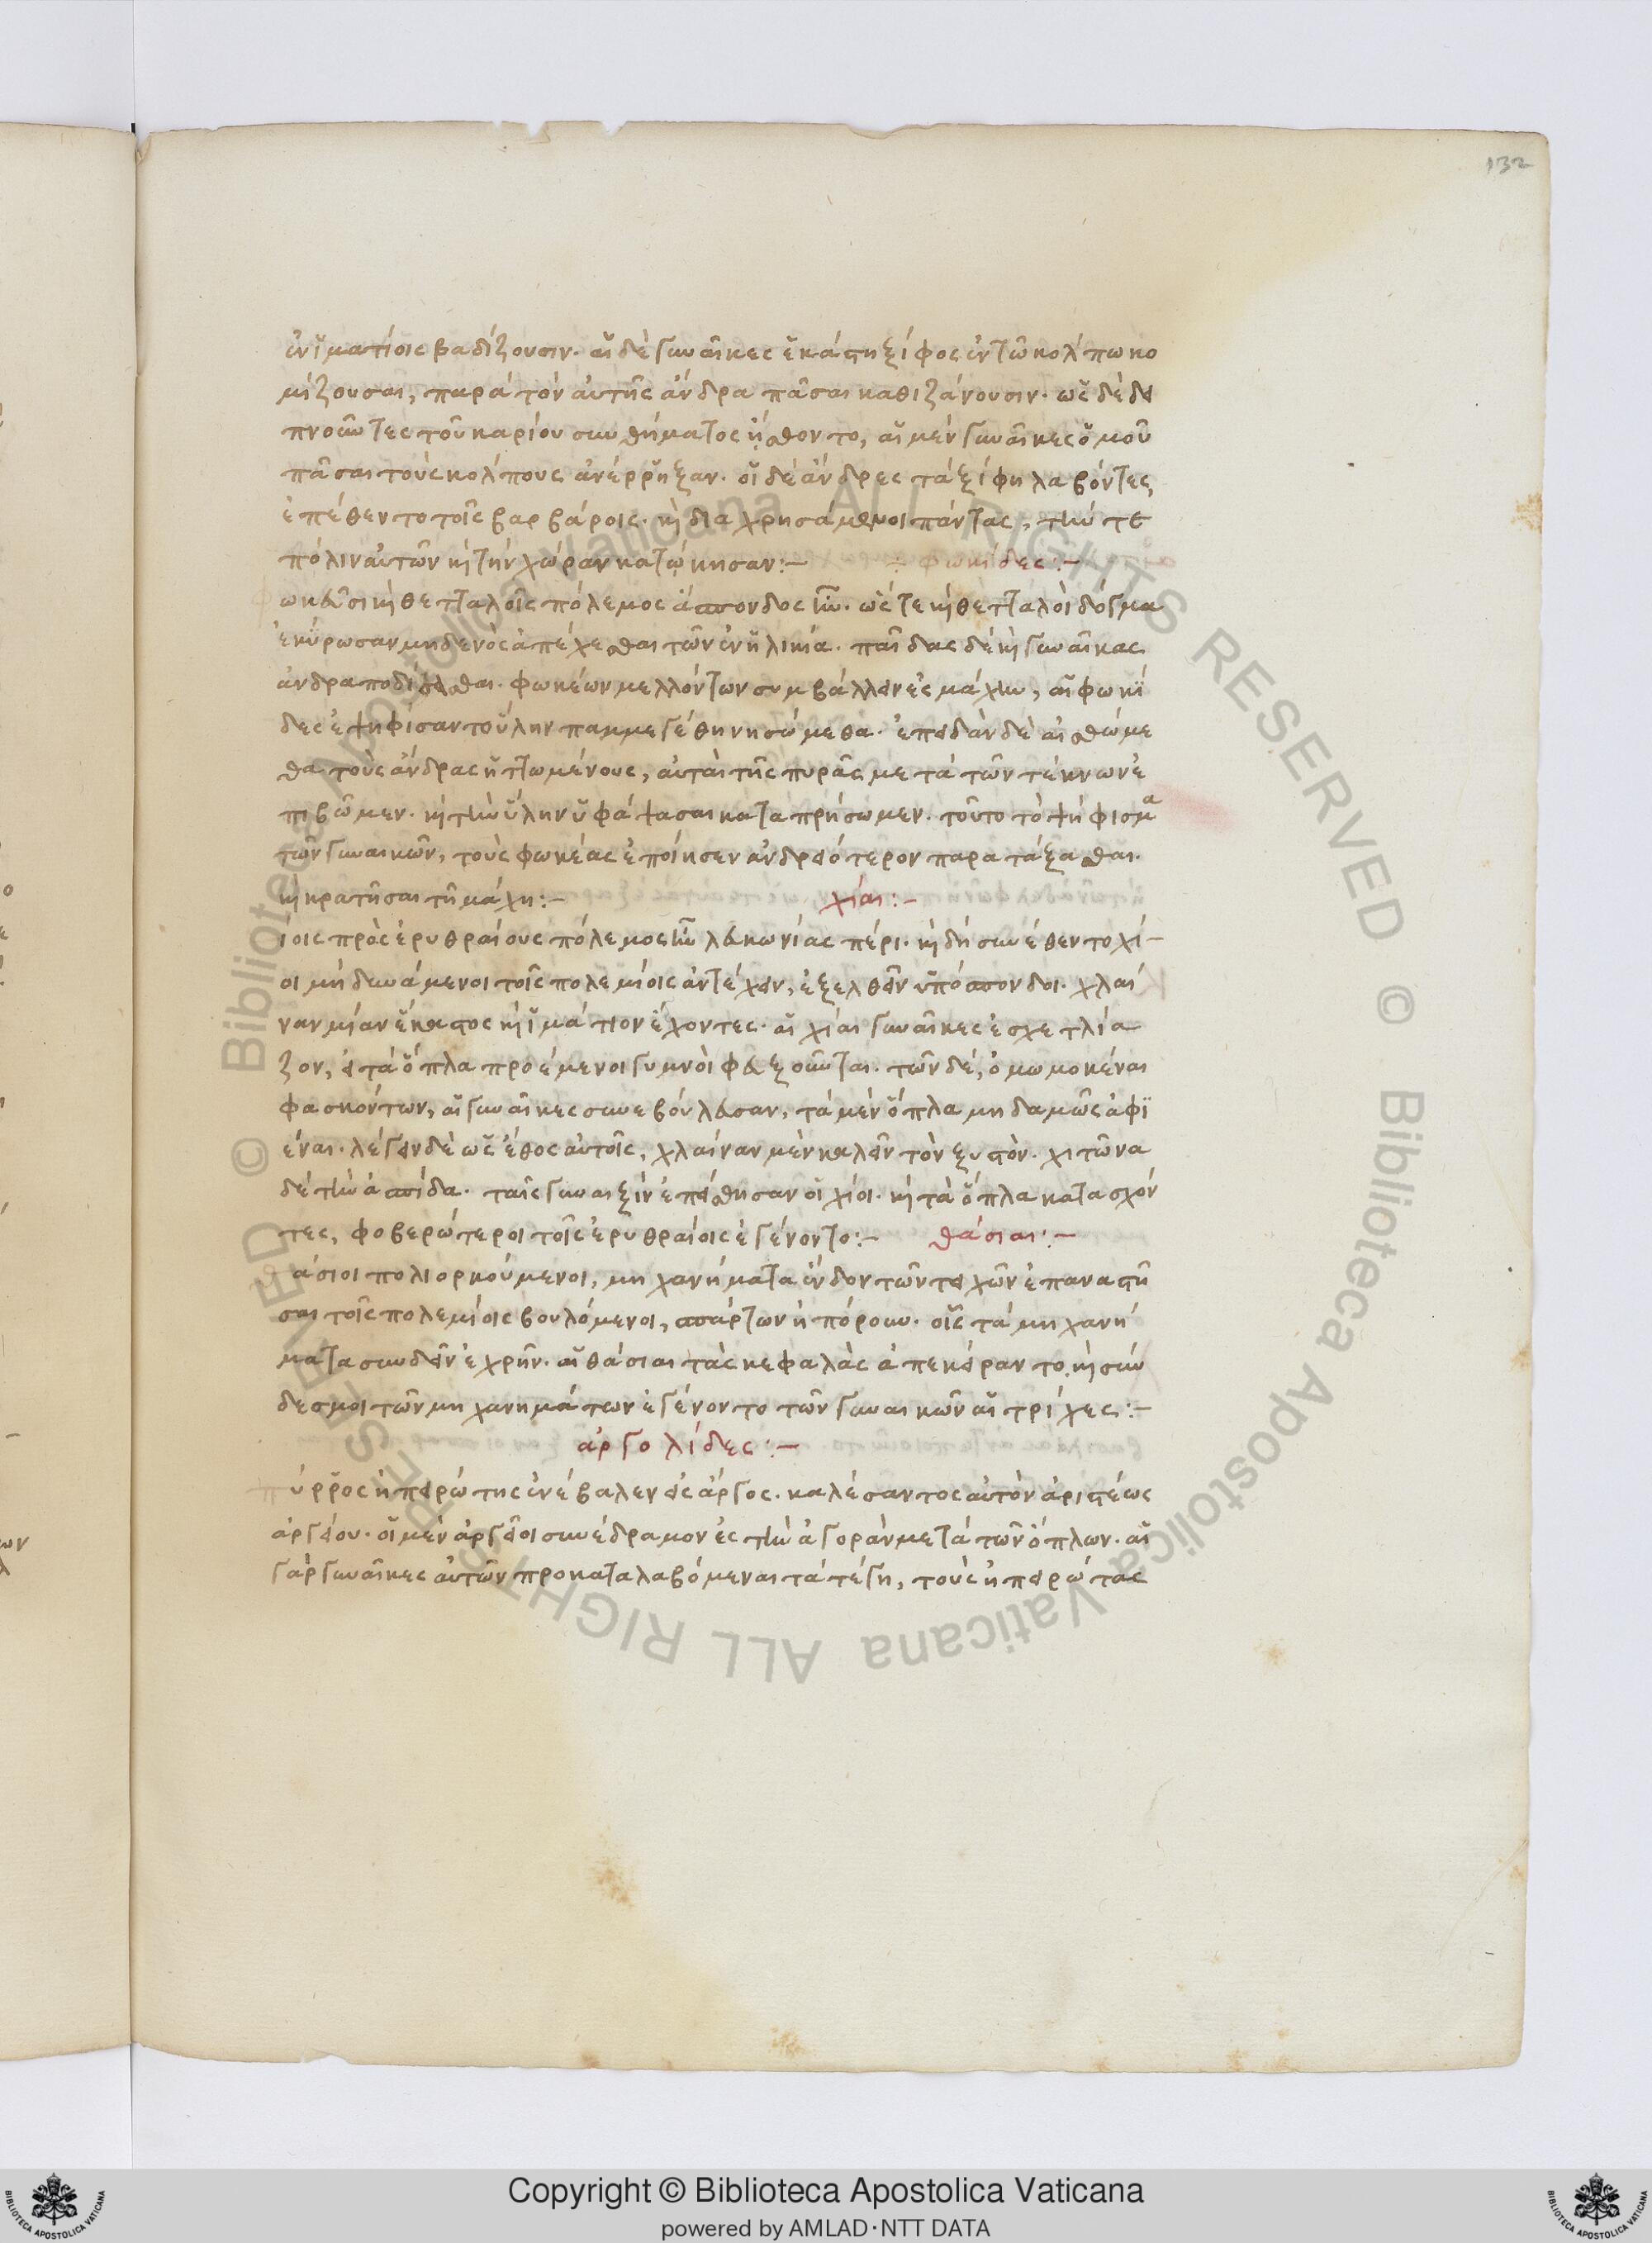 132
ἐν ἱματίοις βαδίζουσιν. αἱ δὲ γυναῖκες ἑκάστη ξίφος ἐν τῶ κόλπω κο
μίζουσαι, παρὰ τὸν αὐτῆς ἄνδρα πᾶσαι καθιζάνουσιν. ὡς δὲ δει
πνοῦντες τοῦ καρίου συνθήματος ἤσθοντο, αἱ μὲν γυναῖκες ὁμοῦ
πᾶσαι τοὺς κόλπους ἀνέρρηξαν. οἱ δὲ ἄνδρες τὰ ξίφη λαβόντες,
ἐπέθεντο τοῖς βαρβάροις. καὶ διαχρησάμενοι πάντας, τήν τε
πόλιν αὐτῶν καὶ τὴν χώραν κατώκησαν:– ÷ φωκίδες:–
ωκεῦσι καὶ θετταλοῖς πόλεμος ἄσπονδος ἦν. ὥστε καὶ θετταλοὶ δόγμα
ἐκύρωσαν μηδενὸς ἀπέχεσθαι τῶν ἐν ἡλικία. παῖδας δὲ καὶ γυναῖκας
ἀνδραποδίζεσθαι. φωκέων μελλόντων συμβάλλειν ἐς μάχην, αἱ φωκί
δες ἐψηφίσαντο ὕλην παμμεγέθη νησώμεθα. ἐπειδὰν δὲ αἰσθώμε
θα τοὺς ἄνδρας ἡττωμένους, αὐταὶ τῆς πυρᾶς μετὰ τῶν τέκνων ἐ
πιβῶμεν. καὶ τὴν ὕλην ὑφάψασαι καταπρήσωμεν. τοῦτο τὸ ψήφισμα
τῶν γυναικῶν, τοὺς φωκέας ἐποίησεν ἀνδρειότερον παρατάξασθαι.
καὶ κρατῆσαι τῆ μάχη:– χίαι:–
ίοις πρὸς ἐρυθραίους πόλεμος ἦν λευκωνίας πέρι. καὶ δὴ συνέθεντο χί–
οι μὴ δυνάμενοι τοῖς πολεμίοις ἀντέχειν, ἐξελθεῖν ὑπόσπονδοι. χλαί
ναν μίαν ἕκαστος καὶ ἱμάτιον ἔχοντες. αἱ χίαι γυναῖκες ἐσχετλία
ζον, εἰ τὰ ὅπλα προέμενοι γυμνοὶ φευξοῦνται. τῶν δέ, ὀμωμοκέναι
φασκόντων, αἱ γυναῖκες συνεβούλευσαν, τὰ μὲν ὅπλα μηδαμῶς ἀφι
έναι. λέγειν δὲ ὡς ἔθος αὐτοῖς, χλαῖναν μὲν καλεῖν τὸν ξυστόν. χιτῶνα
δὲ τὴν ἀσπίδα. ταῖς γυναιξὶν ἐπείσθησαν οἱ χίοι. καὶ τὰ ὅπλα κατασχόν
τες, φοβερώτεροι τοῖς ἐρυθραίοις ἐγένοντο:– θάσιαι:–
άσιοι πολιορκούμενοι, μηχανήματα ἔνδον τῶν τειχῶν ἐπαναστῆ
σαι τοῖς πολεμίοις βουλόμενοι, σπάρτων ἠπόρουν. οἷς τὰ μηχανή
ματα συνδεῖν ἐχρῆν. αἱ θάσιαι τὰς κεφαλὰς ἀπεκείραντο. καὶ σύν
δεσμοι τῶν μηχανημάτων ἐγένοντο τῶν γυναικῶν αἱ τρίχες:–
ἀργολίδες:–
ύρρος ἠπειρώτης ἐνέβαλεν εἰς ἄργος. καλέσαντος αὐτὸν ἀριστέως
ἀργείου. οἱ μὲν ἀργεῖοι συνέδραμον ἐς τὴν ἀγορὰν μετὰ τῶν ὅπλων. αἱ
γὰρ γυναῖκες αὐτῶν προκαταλαβόμεναι τὰ τέγη, τοὺς ἠπειρώτας
Copyright © Biblioteca Apostolica Vaticana
powered by AMLAD·NTT DATA